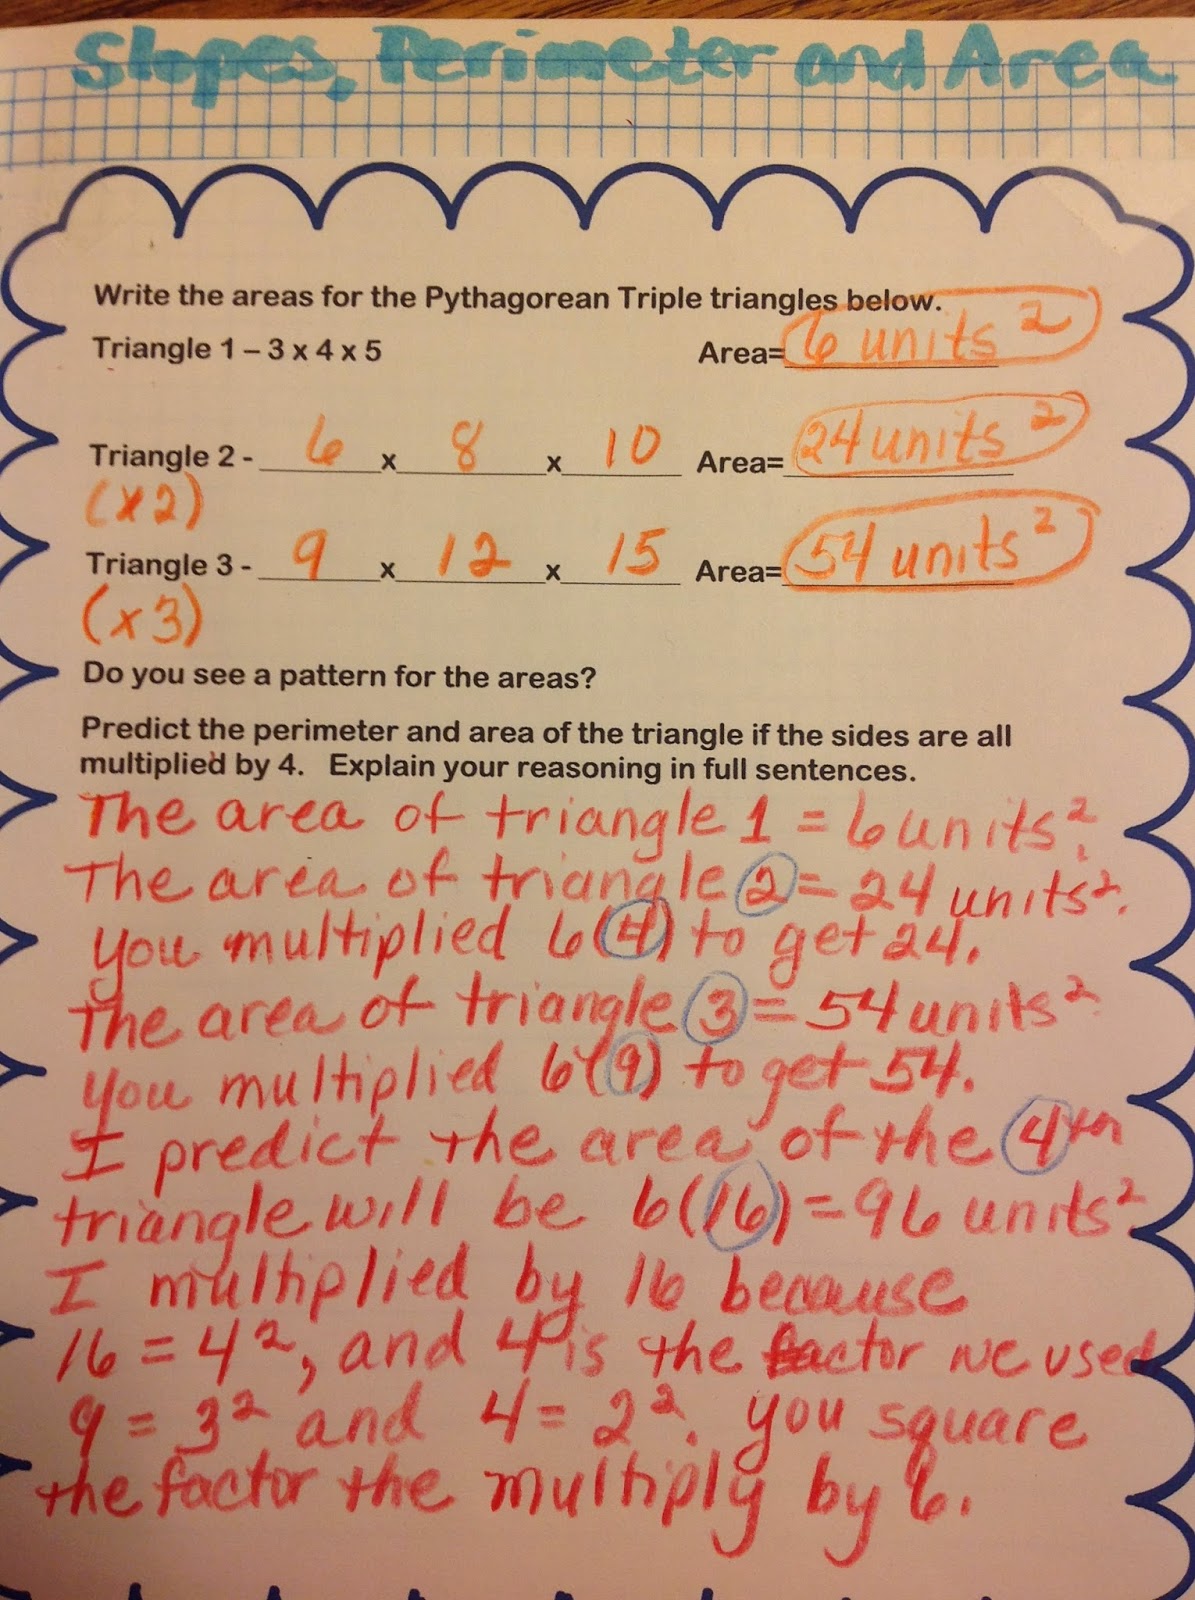 Slopes, Perimeter and Area
Write the areas for the Pythagorean Triple triangles below.
Triangle 1 – 3 x 4 x 5 Area= 6 units²
Triangle 2 - 6 x 8 x 10 Area= 24 units²
(x2)
Triangle 3 - 9 x 12 x 15 Area= 54 units²
(x3)
Do you see a pattern for the areas?
Predict the perimeter and area of the triangle if the sides are all
multiplied by 4. Explain your reasoning in full sentences.
The area of triangle 1 = 6 units².
The area of triangle 2 = 24 units².
You multiplied 6(4) to get 24.
The area of triangle 3 = 54 units².
You multiplied 6(9) to get 54.
I predict the area of the 4th
triangle will be 6(16) = 96 units².
I multiplied by 16 because
16 = 4², and 4 is the factor we used
9 = 3² and 4 = 2². You square
the factor the multiply by 6.